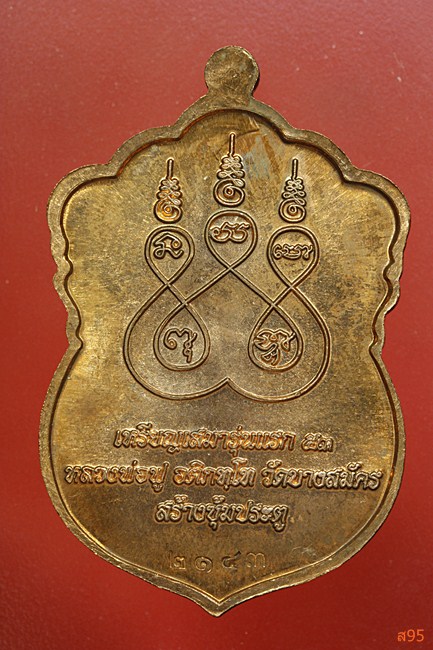 เหรียญเสมารุ่นแรก ๕๓
หลวงพ่อฟู อติภทฺโท วัดบางสมัคร
สร้างซุ้มประตู
๒๑๔๓
ส95